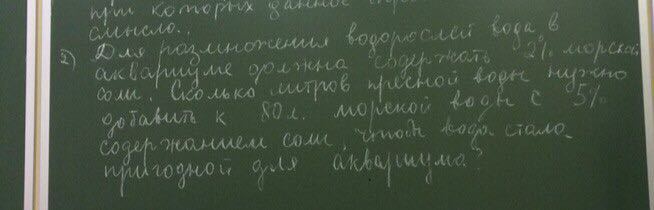 при которых данное
смысло..
2) Для размножения водорослей вода в
аквариуме должна содержать 2% морской
соли. Сколько литров пресной воды нужно
добавить к 80 л. морской воды с 5%
содержанием соли, чтобы вода стала
пригодной для аквариума?